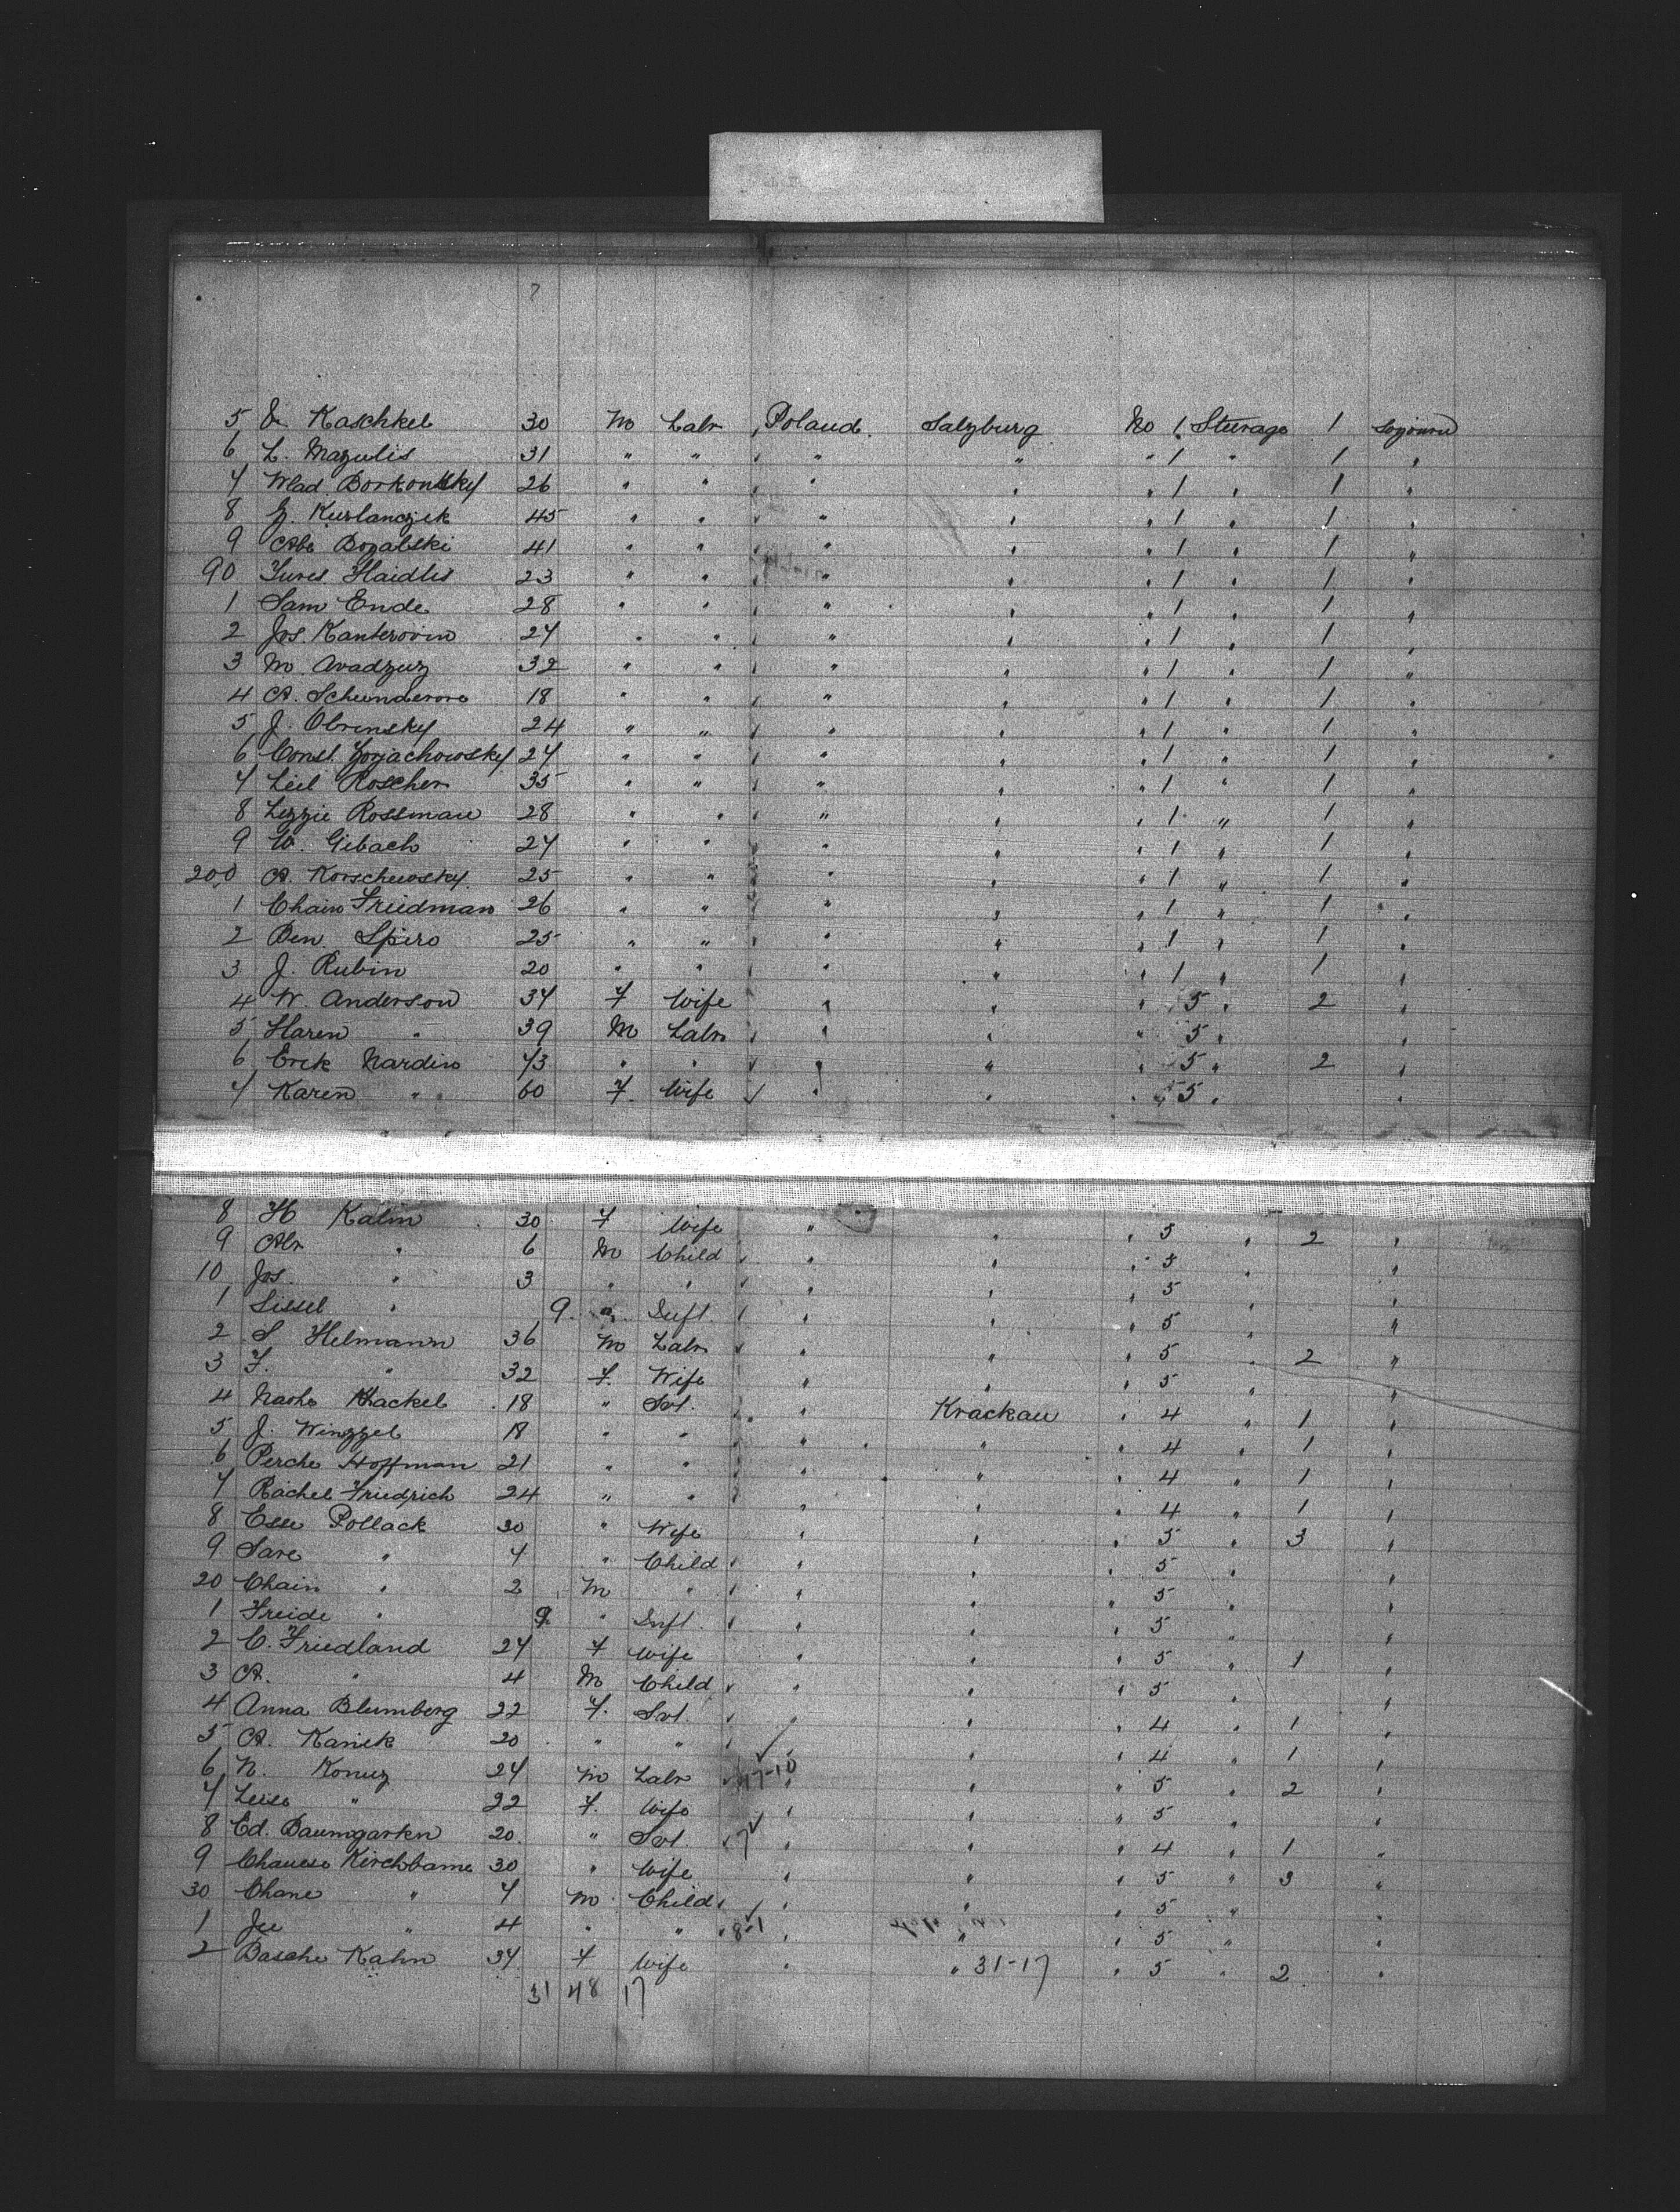 5 Kaschkel 30 M Labr Poland Salzburg No 1 Steerage 1 sojourn
6 L. Mazulis 31 " " " " " 1 " 1 "
7 Wlad Borkonsky 26 " " " " " 1 " 1 "
8 Kurlanczek 45 " " " " " 1 " 1 "
9 Abe Bozalski 41 " " " " " 1 " 1 "
90 Yures Haidlis 23 " " " " " 1 " 1 "
1 Sam Ende 28 " " " " " 1 " 1 "
2 Jos. Kanterovin 27 " " " " " 1 " 1 "
3 M. Avadzuz 32 " " " " " 1 " 1 "
4 A. 18 " " " " " 1 " 1 "
5 J. Obrensky 24 " " " " " 1 " 1 "
6 Const. Zorjachowsky 27 " " " " " 1 " 1 "
7 Leil Roscher 35 " " " " " 1 " 1 "
8 Lezzie Rossman 28 " " " " " 1 " 1 "
9 W. Gibach 27 " " " " " 1 " 1 "
200 A. Korschewsky 25 " " " " " 1 " 1 "
1 Chain Friedman 26 " " " " " 1 " 1 "
2 Ben. Spiro 25 " " " " " 1 " 1 "
3 J. Rubin 20 " " " " " 1 " 1 "
4 W. Anderson 37 F Wife " " " 5 " 2 "
5 Haren " 39 M Labr " " " 5 " "
6 Erik Nardin 73 " " " " " 5 " 2 "
7 Karen " 60 F. Wife " " " 5 " "
8 H Kalm 30 F Wife " " " 5 " 2 "
9 Abr " 6 M Child " " " 5 " "
10 Jos. " 3 " " " " " 5 " "
1 Lissel " 9 " Inft. " " " 5 " "
2 S Helmann 36 M Labr " " " 5 " 2 "
3 F. " 32 F. Wife " " " 5 " "
4 Khackel 18 " Svt. " Krackau " 4 " 1 "
5 J. Winzzel 18 " " " " " 4 " 1 "
6 Perche Hoffman 21 " " " " " 4 " 1 "
7 Rachel Friedrich 24 " " " " " 4 " 1 "
8 Esse Pollack 30 " Wife " " " 5 " 3 "
9 Sare " 7 " Child " " " 5 " "
20 Chain " 2 M " " " " 5 " "
1 Freide " 9 " Inft. " " " 5 " "
2 C. Friedland 27 F Wife " " " 5 " 1 "
3 A. " 4 M Child " " " 5 " "
4 Anna Blumberg 22 F. Svt. " " " 4 " 1 "
5 A. Kanik 20 " " " " " 4 " 1 "
6 N. Konuz 27 M Labr " " " 5 " 2 "
7 Leise " 22 F. Wife " " " 5 " "
8 Ed. Baumgarten 20 " Svt. " " " 4 " 1 "
9 Kirchbame 30 " Wife " " " 5 " 3 "
30 Chane " 7 M Child " " " 5 " "
1 " 4 " " 8-1 " " " 5 " "
2 Basche Kahn 37 F Wife " " 31-17 " 5 " 2 "
31 48 17